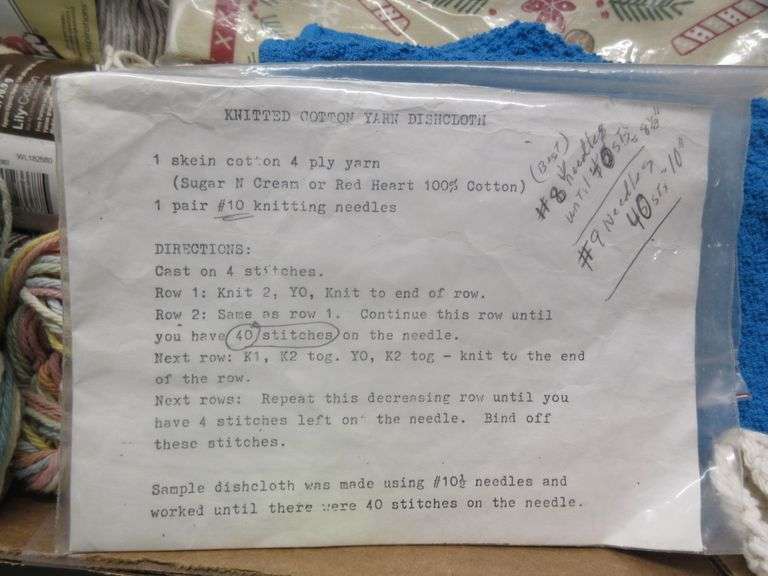 KNITTED COTTON YARN DISHCLOTH
1 skein cotton 4 ply yarn
(Sugar N Cream or Red Heart 100% Cotton)
1 pair #10 knitting needles
(Best)
#8 Needles
until 40 sts = 8½"
#9 Needles
40 sts - 10"
DIRECTIONS:
Cast on 4 stitches.
Row 1: Knit 2, YO, Knit to end of row.
Row 2: Same as row 1. Continue this row until
you have 40 stitches on the needle.
Next row: K1, K2 tog. YO, K2 tog - knit to the end
of the row.
Next rows: Repeat this decreasing row until you
have 4 stitches left on the needle. Bind off
these stitches.
Sample dishcloth was made using #10½ needles and
worked until there were 40 stitches on the needle.
Lily Cotton
WL182580